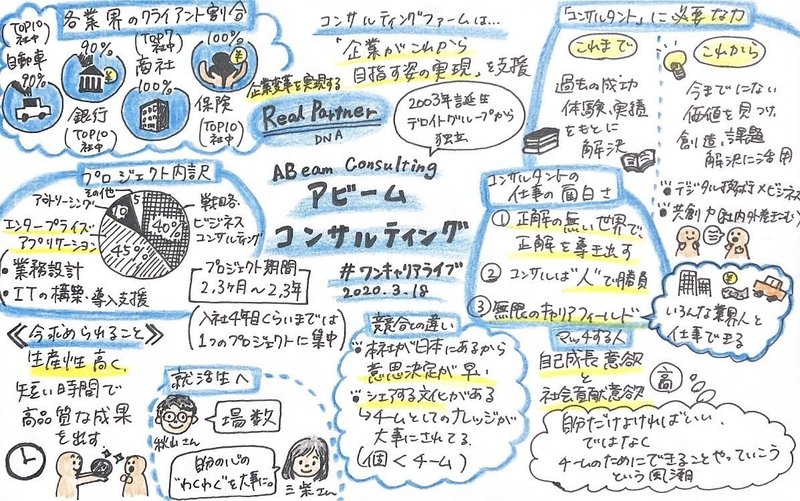 各業界のクライアント割合
(TOP10社中)
自動車
90%
90%
銀行
(TOP10社中)
(TOP7社中)
商社
100%
100%
保険
(TOP10社中)
コンサルティングファームは…
「企業がこれから
目指す姿の実現」を支援
企業変革を実現する
Real Partner
DNA
2003年誕生
デロイトグループから
独立
ABeam Consulting
アビーム
コンサルティング
#ワンキャリアライブ
2020.3.18
「コンサルタント」に必要な力
これまで
過去の成功
体験、実績
をもとに
解決
これから
今までにない
価値を見つけ、
創造、課題
解決に活用
・デジタル技術×ビジネス
・共創力(社内外含む)
プロジェクト内訳
その他
アウトソーシング
エンタープライズ
アプリケーション
5
10
40%
45%
戦略・
ビジネス
コンサルティング
・業務設計
・ITの構築・導入支援
プロジェクト期間
2,3ヶ月〜2,3年
(入社4年目くらいまでは
1つのプロジェクトに集中)
コンサルタントの
仕事の面白さ
①正解の無い世界で
正解を導き出す
②コンサルは"人"で勝負
③無限のキャリアフィールド
いろんな業界、人と
仕事できる
≪今求められること≫
生産性高く、
短い時間で
高品質な成果
を出す
就活生へ
秋山さん
場数
自分の心の
"わくわく"を大事に。
三柴さん
競合との違い
・本社が日本にあるから
意思決定が早い
・シェアする文化がある
→チームとしてのナレッジが
大事にされてる
(個<チーム)
マッチする人
自己成長意欲
と
社会貢献意欲
高
自分だけよければいい、
ではなく
チームのためにできることやっていこう
という風潮